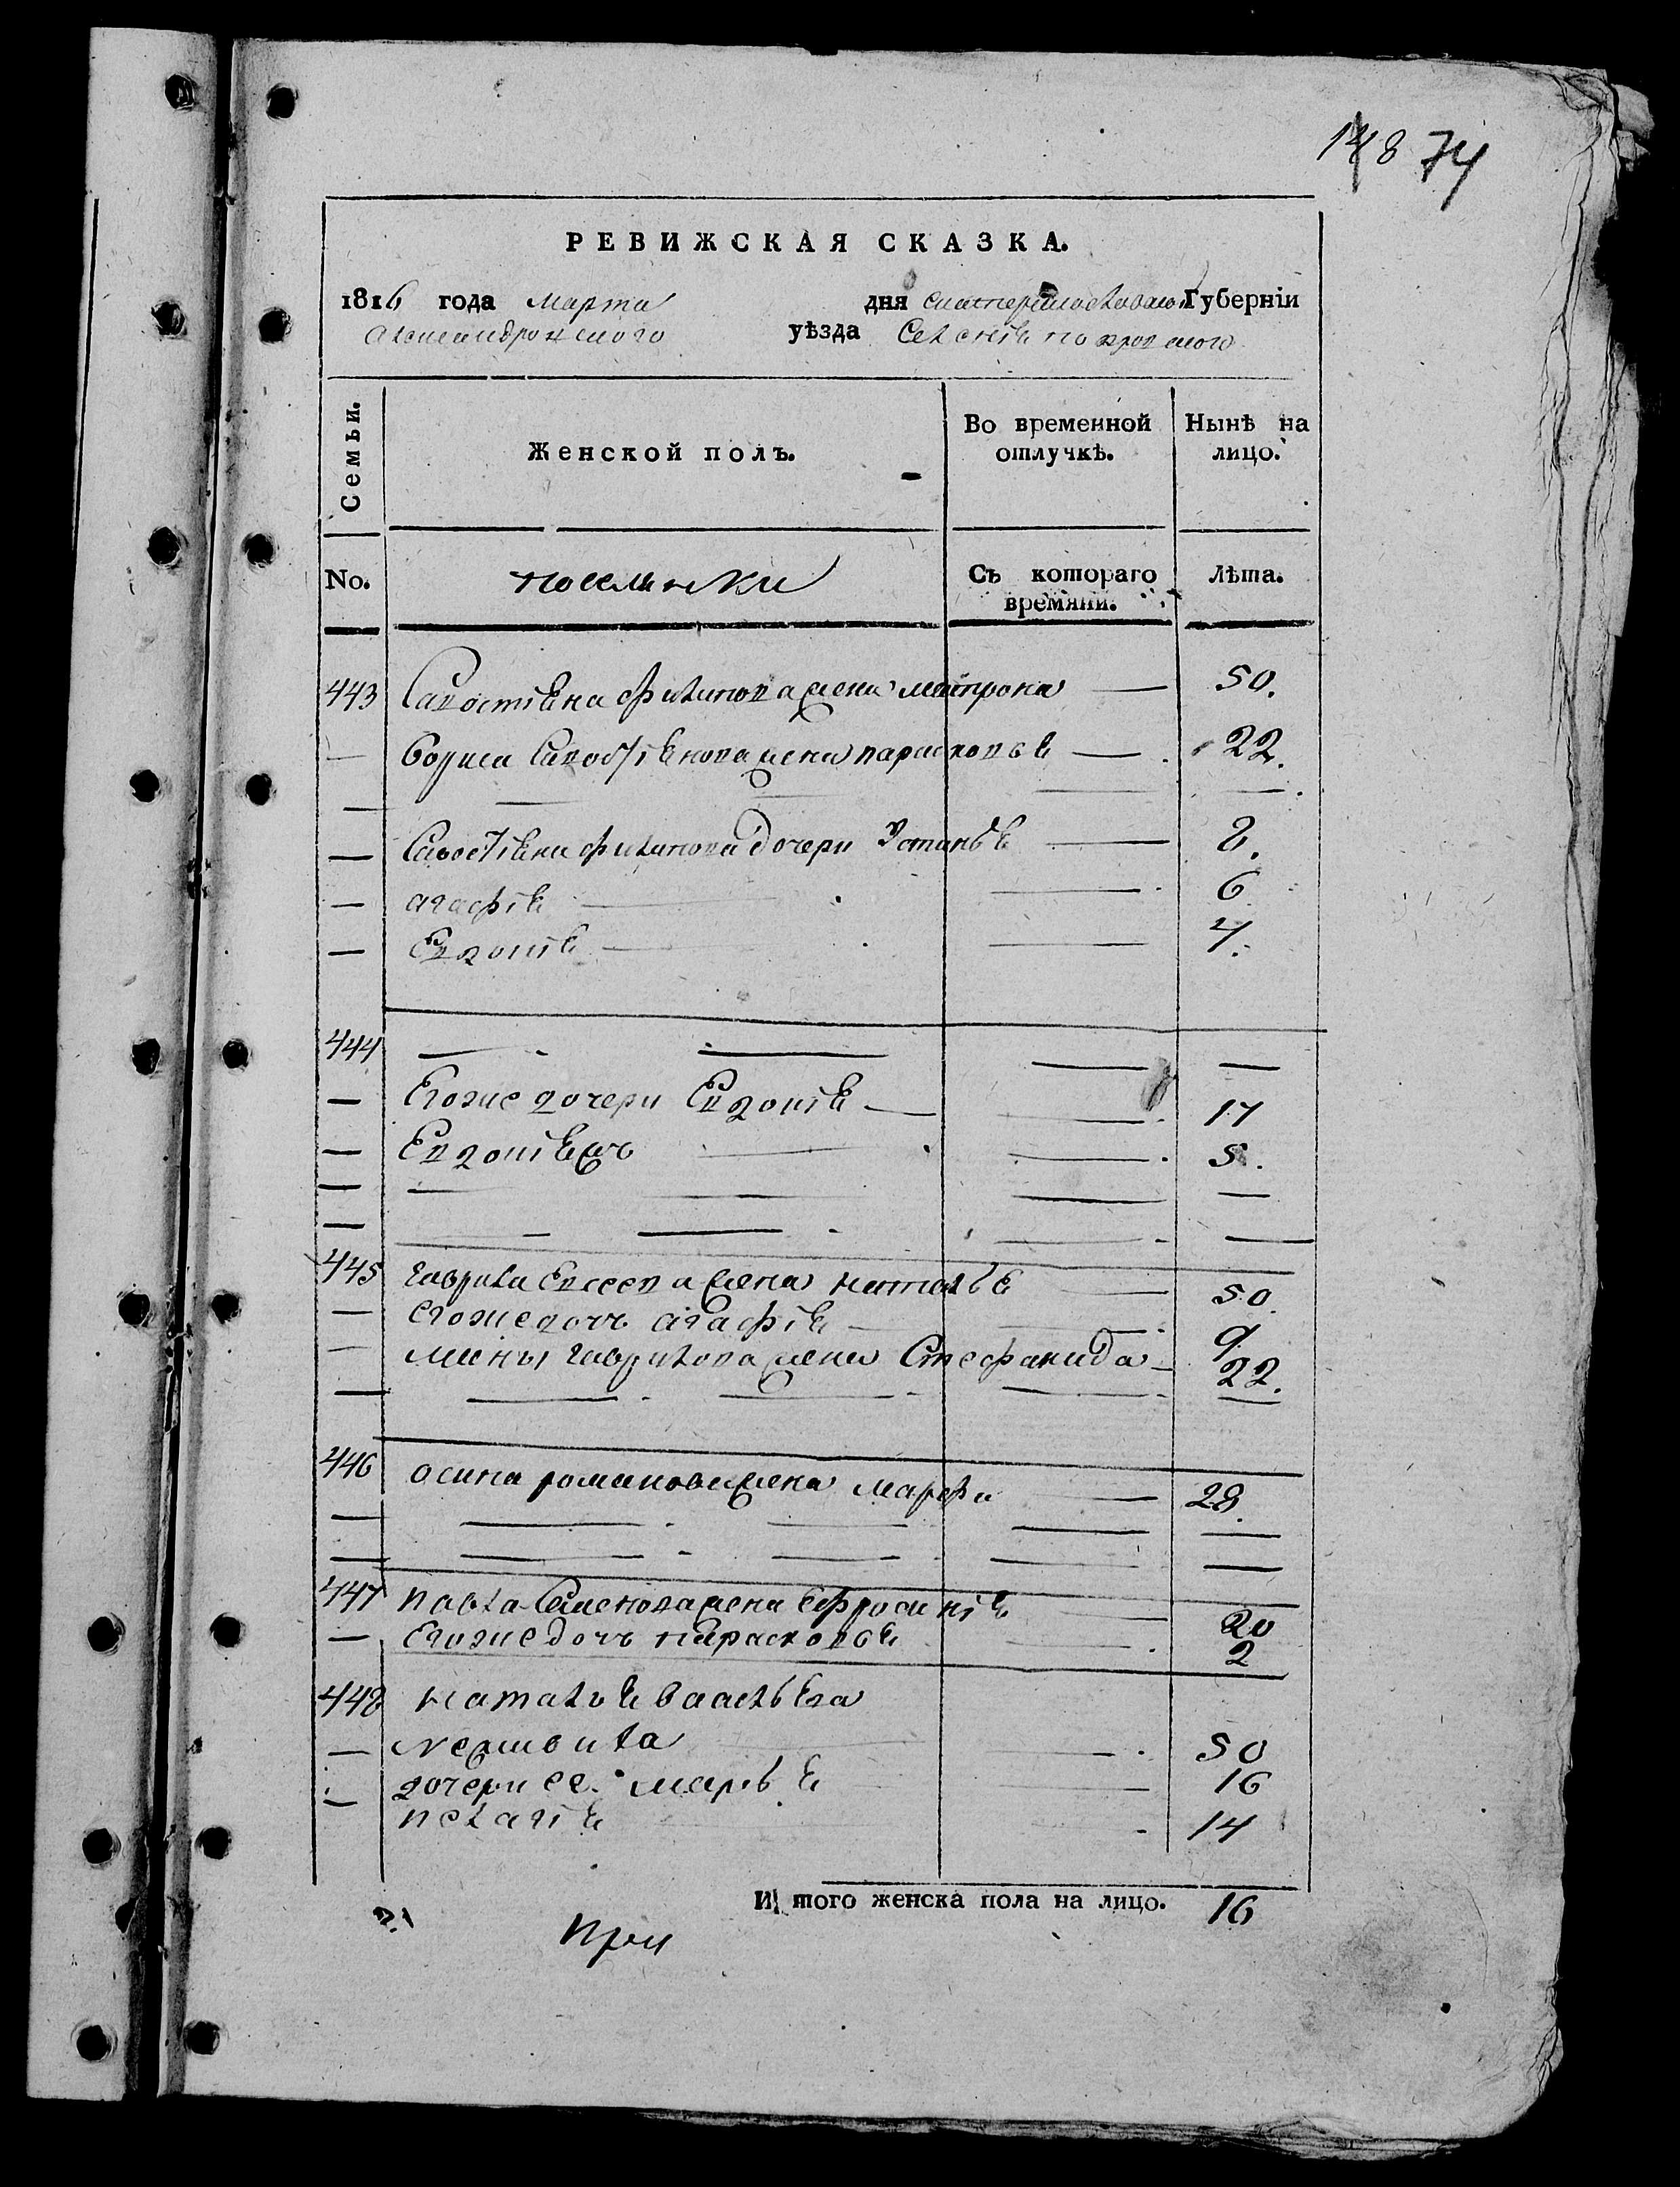 148 74
РЕВИЖСКАЯ СКАЗКА.
1816 года марта дня екатеринославской Губерніи
александровского уѣзда Селенія покровского
Семьи. Женской полъ. Во временной отлучкѣ. Нынѣ на лицо.
No. поселянки Съ котораго времяни. Лѣта.
443 Савостіяна филипова жена матрона — 50.
— Бориса Савостіянова жена парасковья — 22.
— Савостіяна филипова дочери Устинья — 8.
— агафія — 6
— Евдокія — 4.
444 — — — —
— Егоже дочери Евдокія — — 17
— Евдокія жъ — — 5.
— — — — —
— — — — —
445 гаврила Евсеева жена наталья — 50.
— Егоже дочь агафія — — 9
— мины гаврилова жена Стефанида — 22.
— — — — —
446 осипа романова жена марфа — 28.
— — — — —
— — — — —
447 павла Семенова жена Ефросинія — 20
— Егоже дочь парасковья — 2
448 наталья васильева
— — 50
дочери ее марья — 16
— пелагія — 14
И того женска пола на лицо. 16
При